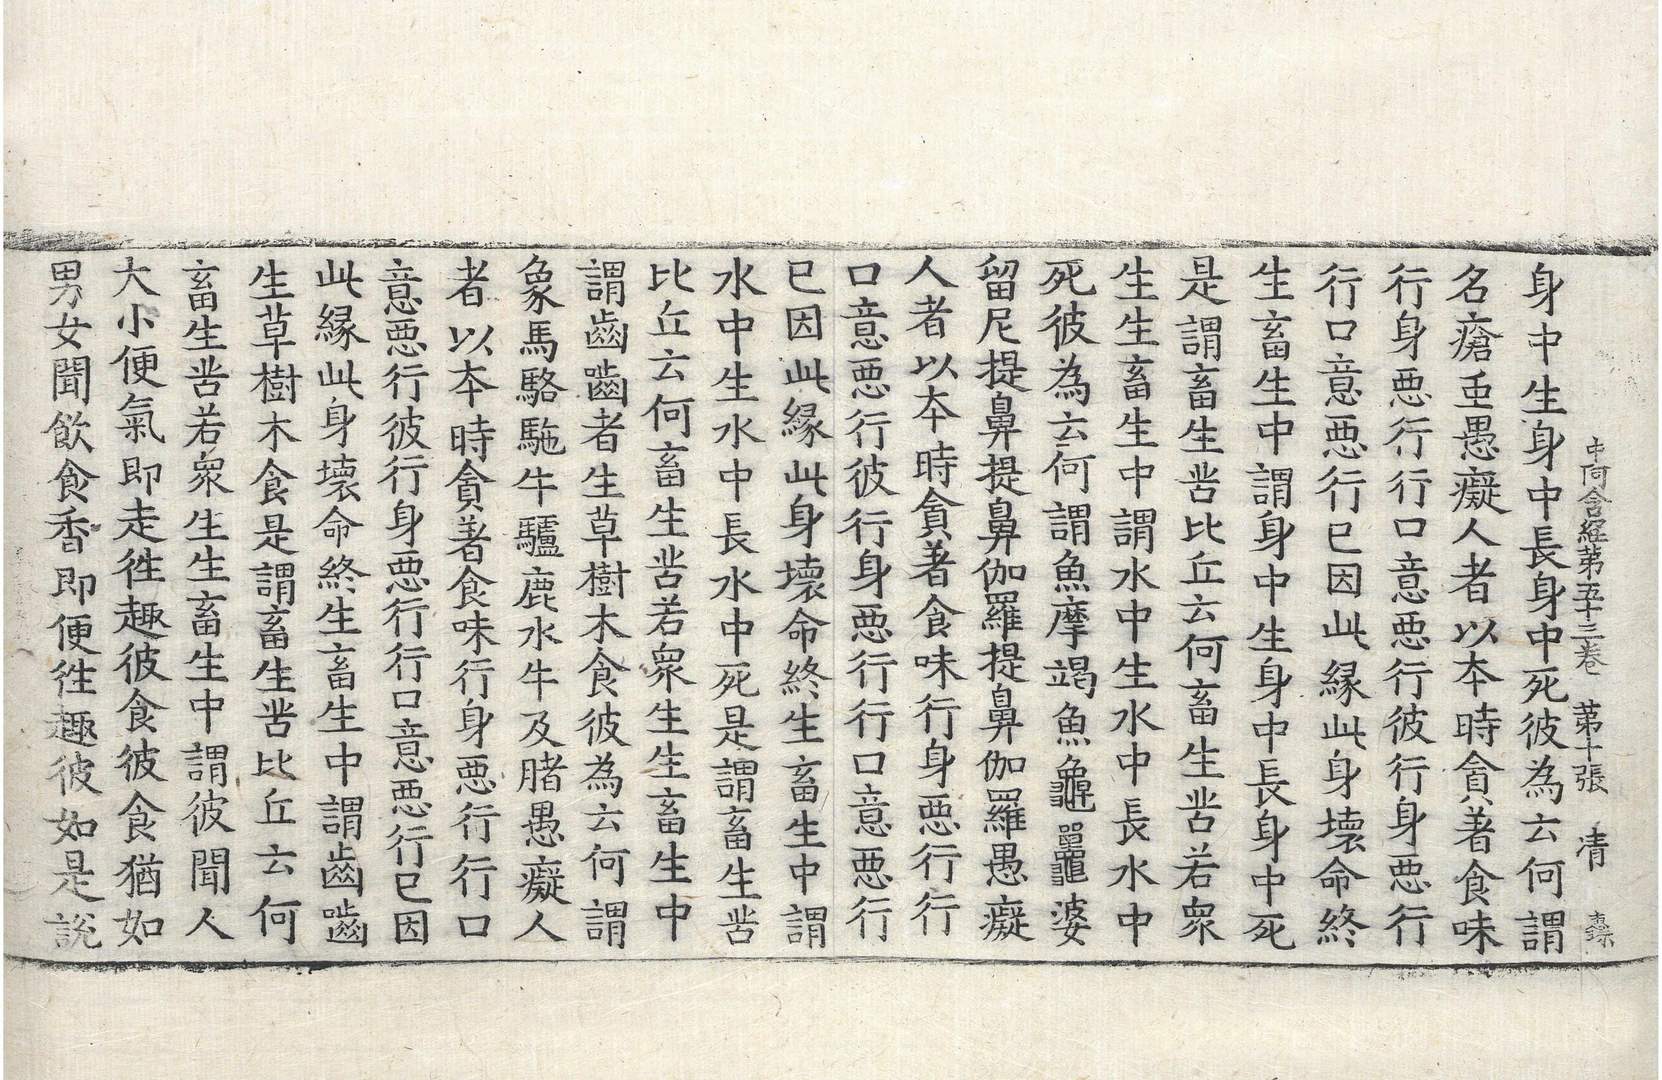 中阿含經第五十三卷 第十張 清
身中生身中長身中死彼為云何謂
名瘡重愚癡人者以本時貪著食味
行身惡行行口意惡行彼行身惡行
行口意惡行已因此緣此身壞命終
生畜生中謂身中生身中長身中死
是謂畜生苦比丘云何畜生苦若衆
生生畜生中謂水中生水中長水中
死彼為云何謂魚摩竭魚龜鼉婆
留尼提鼻提鼻伽羅提鼻伽羅愚癡
人者以本時貪著食味行身惡行行
口意惡行彼行身惡行行口意惡行
已因此緣此身壞命終生畜生中謂
水中生水中長水中死是謂畜生苦
比丘云何畜生苦若衆生生畜生中
謂齒齧者生草樹木食彼為云何謂
象馬駱駞牛驢鹿水牛及腤愚癡人
者以本時貪著食味行身惡行行口
意惡行彼行身惡行行口意惡行已因
此緣此身壞命終生畜生中謂齒齧
生草樹木食是謂畜生苦比丘云何
畜生苦若衆生生畜生中謂彼聞人
大小便氣即走徃趣彼食彼食猶如
男女聞飲食香即便徃趣彼如是說